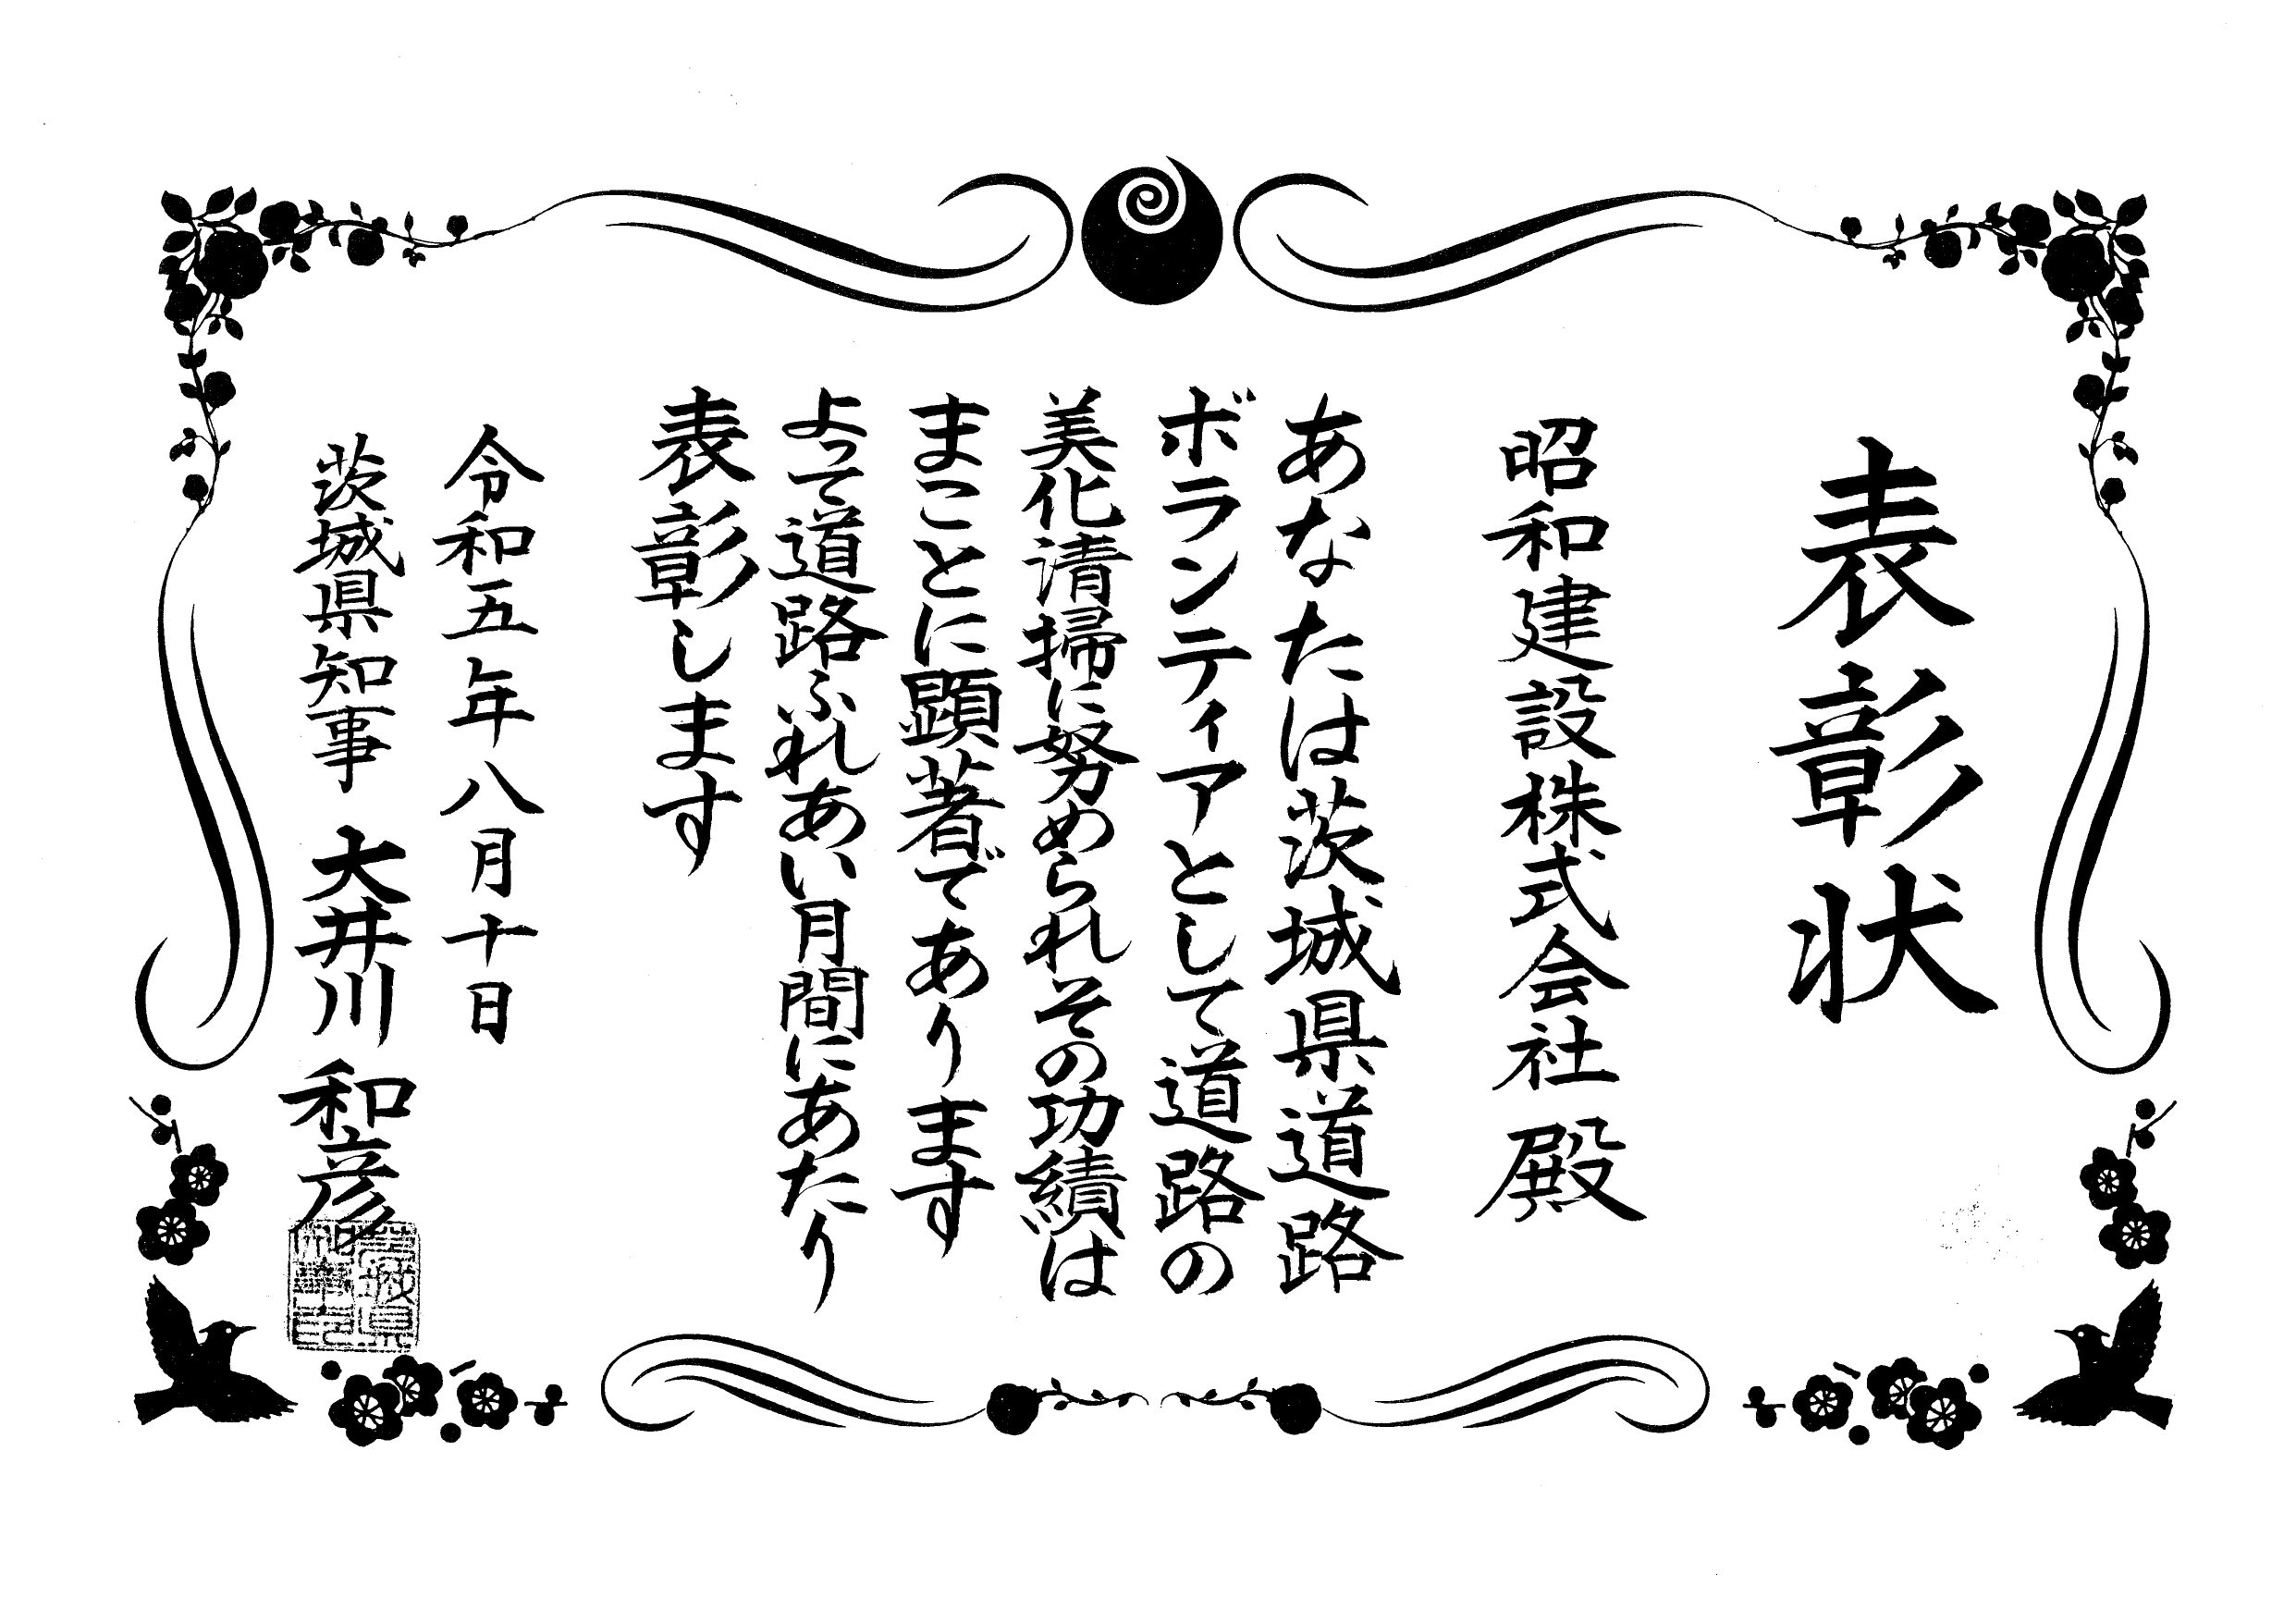 表彰状
昭和建設株式会社 殿
あなたは茨城県道路
ボランティアとして道路の
美化清掃に努められその功績は
まことに顕著であります
よって道路ふれあい月間にあたり
表彰します
令和五年八月十日
茨城県知事 大井川 和彦
茨城県
知事印